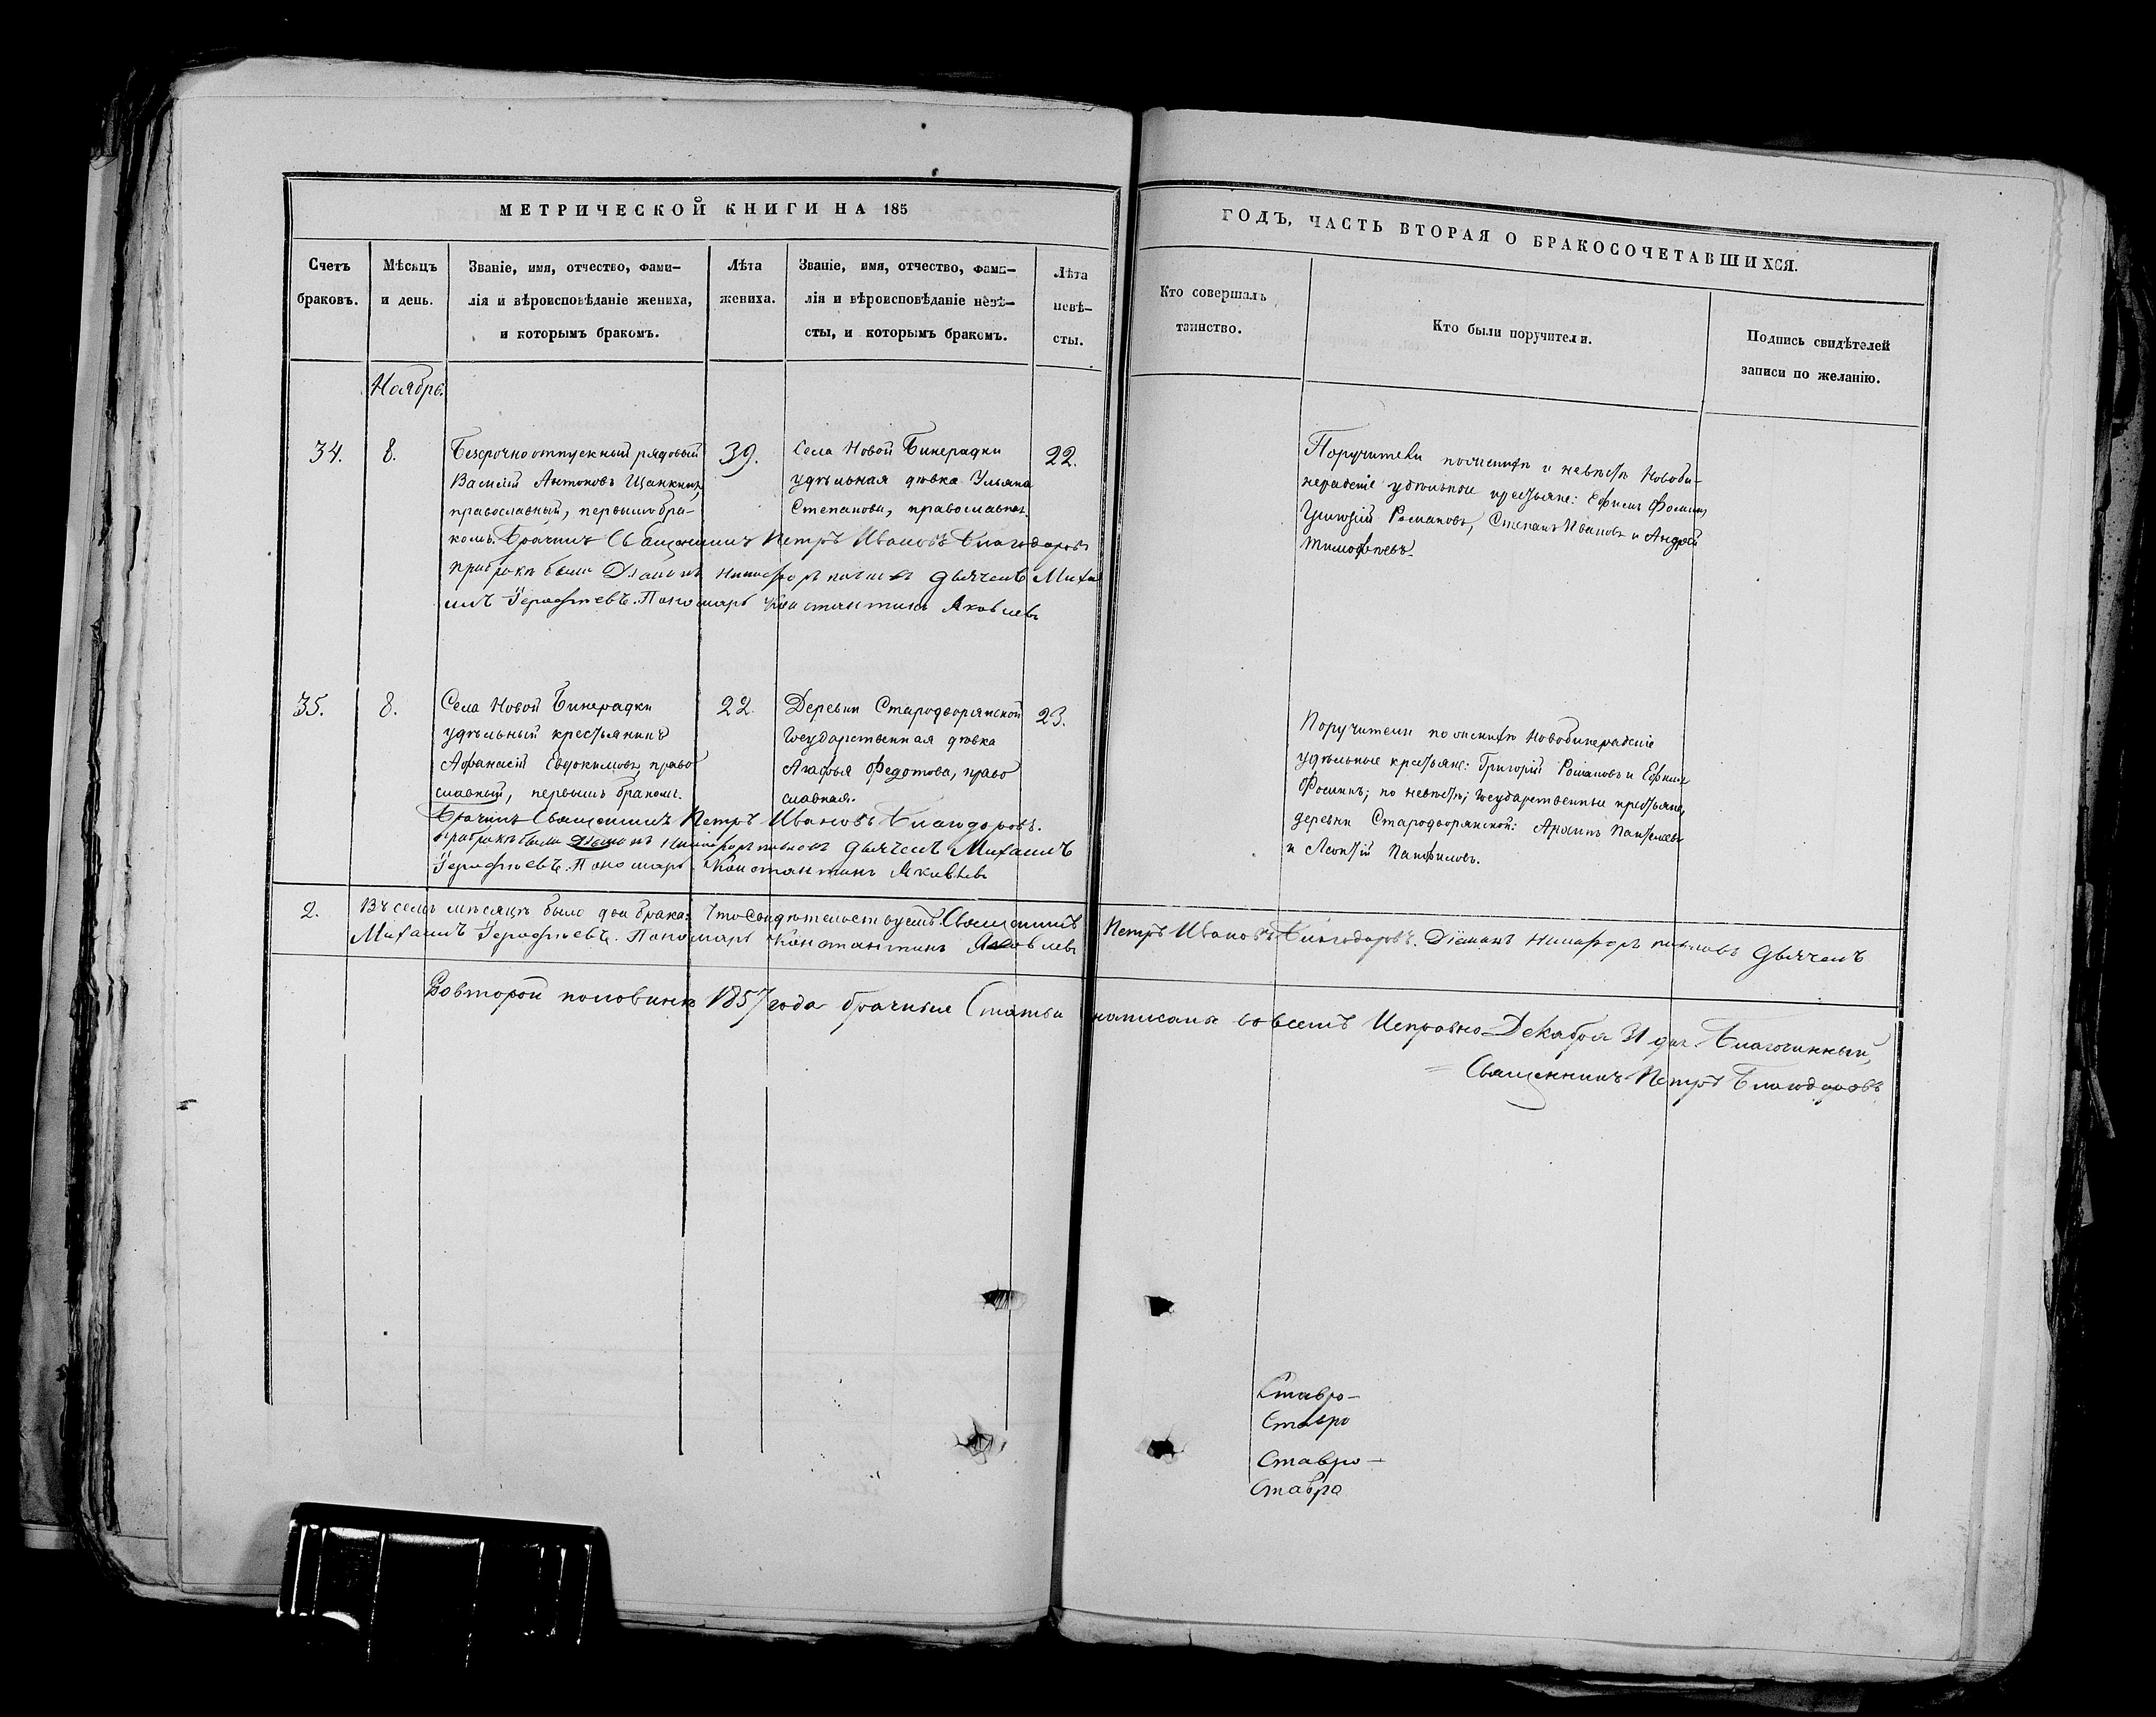 МЕТРИЧЕСКОЙ КНИГИ НА 185
Счетъ браковъ.
Мѣсяцъ и день.
Званіе, имя, отчество, фами-
лія и вѣроисповѣданіе жениха,
и которымъ бракомъ.
Лѣта
жениха.
Званіе, имя, отчество, фами-
лія и вѣроисповѣданіе невѣ-
сты, и которымъ бракомъ.
Лѣта
невѣ-
сты.
Ноябрь.
34.
8.
Безсрочноотпускный рядовый
Василій Антоновъ
православный, первымъ бра-
комъ.
39.
Села Новой Бинерадки
удѣльная дѣвка Ульяна
Степанова, православная.
22.
Брачилъ Священникъ Петръ Ивановъ Благодаровъ
при бракѣ были Діаконъ Никифоръ Павловъ Дьячекъ Миха
илъ Пономарь Константинъ Яковлевъ
35.
8.
Села Новой Бинерадки
удѣльный крестьянинъ
Афанасій Евдокимовъ, право
славный, первымъ бракомъ.
22.
Деревни Стародворянской
Государственная дѣвка
Агафья Федотова, право
славная.
23.
Брачилъ Священникъ Петръ Ивановъ Благодаровъ.
при бракѣ были Діаконъ Никифоръ Павловъ Дьячекъ Михаилъ
Пономарь Константинъ Яковлевъ
2.
Въ семъ мѣсяцѣ было два брака: Что свидѣтельствуемъ. Священникъ Петръ Ивановъ Благодаровъ. Діаконъ Никифоръ Павловъ Дьячекъ
Михаилъ Пономарь Константинъ Яковлевъ
Во второй половинѣ 1857 года брачные Статьи написаны во всемъ Исправно Декабря 31 дня. Благочинный,
Священникъ Петръ Благодаровъ
ГОДЪ, ЧАСТЬ ВТОРАЯ О БРАКОСОЧЕТАВШИХСЯ.
Кто совершалъ
таинство.
Кто были поручители.
Подпись свидѣтелей
записи по желанію.
Поручители по женихѣ и невѣстѣ Новоби-
нерадскіе удѣльные крестьяне: Ефимъ Фоминъ,
Григорій Романовъ, Степанъ Ивановъ и Андрей
Тимофѣевъ.
Поручители по женихѣ Новобинерадскіе
удѣльные крестьяне: Григорій Романовъ и Ефимъ
Фоминъ; по невѣстѣ; Государственные крестьяне,
деревни Стародворянской:
и Леонтій Панфиловъ.
Ставро-
Ставро
Ставро-
Ставро